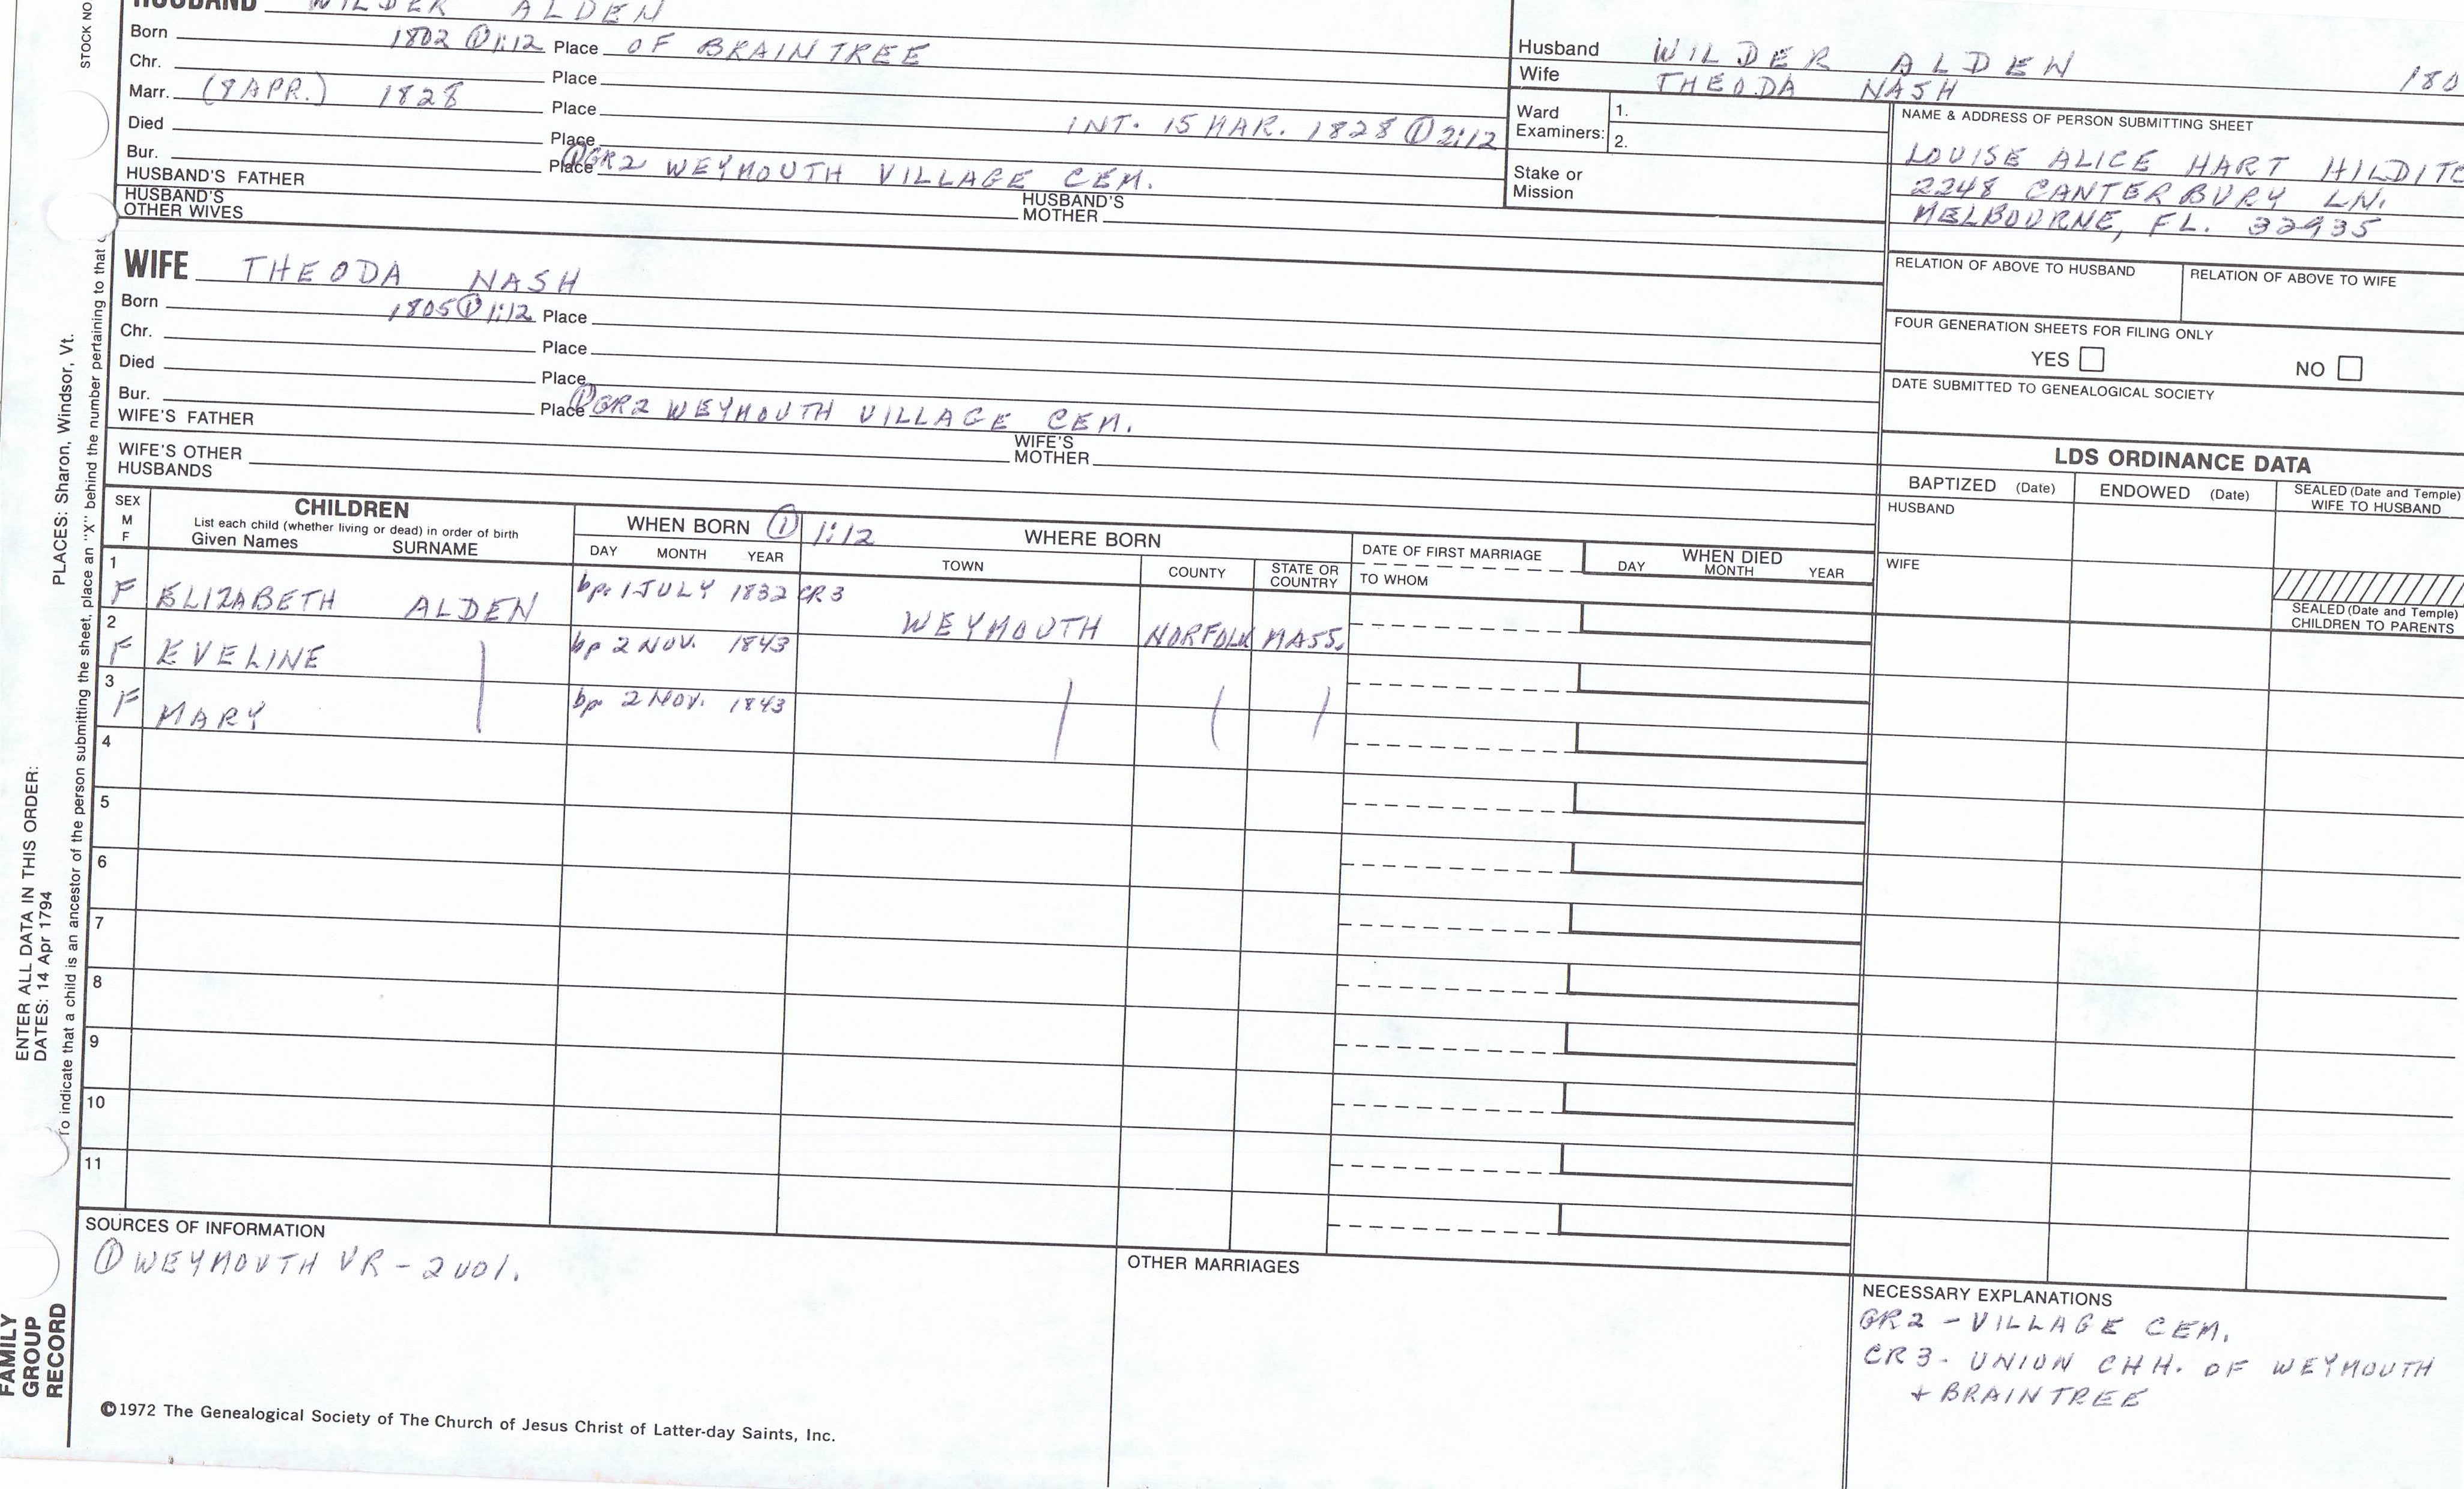 HUSBAND WILDER ALDEN
Born 1802 ① 1:12 Place OF BRAINTREE
Chr. Place
Marr. (8 APR.) 1828 Place
INT. 15 MAR. 1828 ① 2:12
Died Place
Bur. Place ① GR2 WEYMOUTH VILLAGE CEM.
HUSBAND'S FATHER
HUSBAND'S MOTHER
HUSBAND'S OTHER WIVES
Husband WILDER ALDEN 180
Wife THEODA NASH
Ward Examiners: 1.
2.
Stake or Mission
NAME & ADDRESS OF PERSON SUBMITTING SHEET
LOUISE ALICE HART HILDITC
2248 CANTERBURY LN.
MELBOURNE, FL. 32935
RELATION OF ABOVE TO HUSBAND
RELATION OF ABOVE TO WIFE
FOUR GENERATION SHEETS FOR FILING ONLY
YES NO
DATE SUBMITTED TO GENEALOGICAL SOCIETY
WIFE THEODA NASH
Born 1805 ① 1:12 Place
Chr. Place
Died Place
Bur. Place ① GR2 WEYMOUTH VILLAGE CEM.
WIFE'S FATHER
WIFE'S MOTHER
WIFE'S OTHER HUSBANDS
LDS ORDINANCE DATA
BAPTIZED (Date) ENDOWED (Date) SEALED (Date and Temple) WIFE TO HUSBAND
HUSBAND
WIFE
SEALED (Date and Temple) CHILDREN TO PARENTS
SEX M F
CHILDREN
List each child (whether living or dead) in order of birth
Given Names SURNAME
WHEN BORN ① 1:12
DAY MONTH YEAR
WHERE BORN
TOWN COUNTY STATE OR COUNTRY
DATE OF FIRST MARRIAGE
TO WHOM
WHEN DIED
DAY MONTH YEAR
1 F ELIZABETH ALDEN bp. 1 JULY 1832 CR3 WEYMOUTH NORFOLK MASS.
2 F EVELINE bp 2 NOV. 1843
3 F MARY bp 2 NOV. 1843
4
5
6
7
8
9
10
11
SOURCES OF INFORMATION
① WEYMOUTH VR - 2 vol.
OTHER MARRIAGES
NECESSARY EXPLANATIONS
GR2 - VILLAGE CEM.
CR3 - UNION CHH. OF WEYMOUTH
+ BRAINTREE
©1972 The Genealogical Society of The Church of Jesus Christ of Latter-day Saints, Inc.
STOCK NO
PLACES: Sharon, Windsor, Vt.
To indicate that a child is an ancestor of the person submitting the sheet, place an "X" behind the number pertaining to that
ENTER ALL DATA IN THIS ORDER:
DATES: 14 Apr 1794
FAMILY
GROUP
RECORD